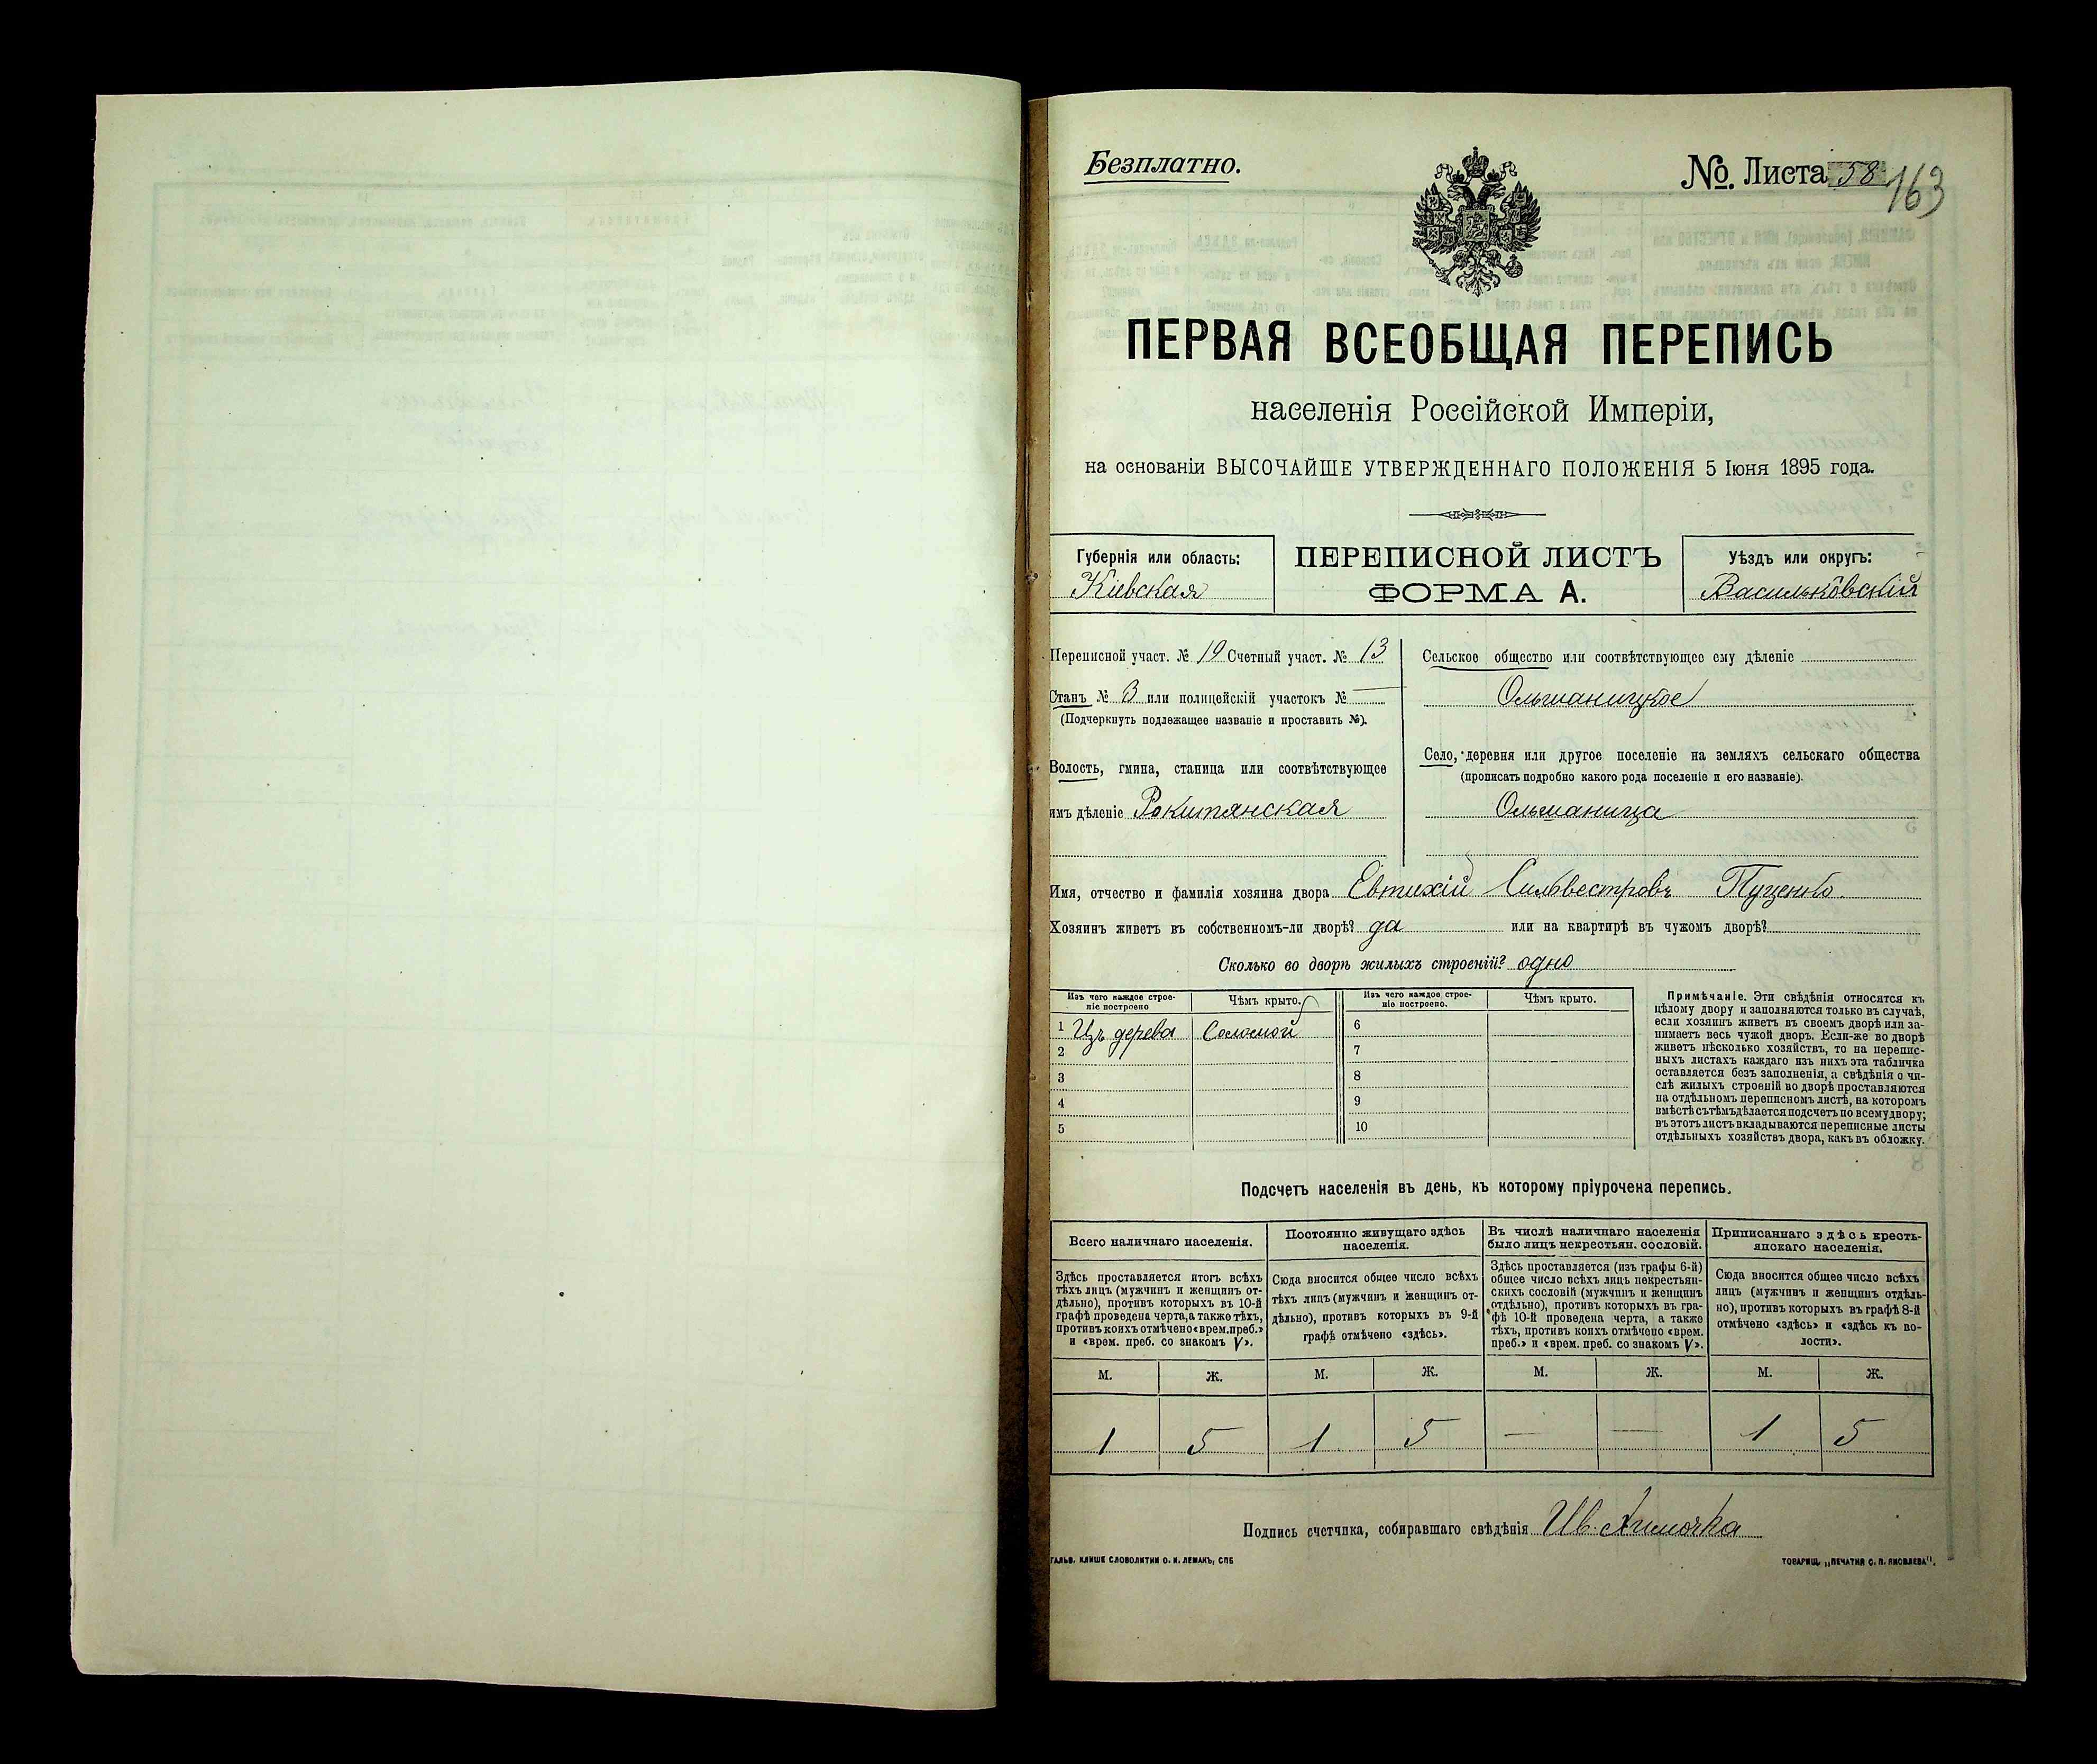 Безплатно.
№. Листа 58
163
ПЕРВАЯ ВСЕОБЩАЯ ПЕРЕПИСЬ
населенія Россійской Имперіи,
на основаніи ВЫСОЧАЙШЕ УТВЕРЖДЕННАГО ПОЛОЖЕНІЯ 5 Іюня 1895 года.
Губернія или область:
Кіевская
ПЕРЕПИСНОЙ ЛИСТЪ
ФОРМА А.
Уѣздъ или округъ:
Васильковскій
Переписной участ. № 19 Счетный участ. № 13
Станъ № 3 или полицейскій участокъ № —
(Подчеркнуть подлежащее названіе и проставить №).
Волость, гмина, станица или соотвѣтствующее
имъ дѣленіе Рокитянская
Сельское общество или соотвѣтствующее ему дѣленіе
Ольшаницкое
Село, деревня или другое поселеніе на земляхъ сельскаго общества
(прописать подробно какого рода поселеніе и его названіе).
Ольшаница
Имя, отчество и фамилія хозяина двора Евтихій Сильвестровъ Пуценко.
Хозяинъ живетъ въ собственномъ-ли дворѣ? да или на квартирѣ въ чужомъ дворѣ?
Сколько во дворѣ жилыхъ строеній? одно
Изъ чего каждое строе-
ніе построено
Чѣмъ крыто.
Изъ чего каждое строе-
ніе построено.
Чѣмъ крыто.
1 Изъ дерева Соломой
2
3
4
5
6
7
8
9
10
Примѣчаніе. Эти свѣдѣнія относятся къ
цѣлому двору и заполняются только въ случаѣ,
если хозяинъ живетъ въ своемъ дворѣ или за-
нимаетъ весь чужой дворъ. Если-же во дворѣ
живетъ нѣсколько хозяйствъ, то на перепис-
ныхъ листахъ каждаго изъ нихъ эта табличка
оставляется безъ заполненія, а свѣдѣнія о чи-
слѣ жилыхъ строеній во дворѣ проставляются
на отдѣльномъ переписномъ листѣ, на которомъ
вмѣстѣ съ тѣмъ дѣлается подсчетъ по всему двору;
въ этотъ листъ вкладываются переписные листы
отдѣльныхъ хозяйствъ двора, какъ въ обложку.
Подсчетъ населенія въ день, къ которому пріурочена перепись.
Всего наличнаго населенія.
Здѣсь проставляется итогъ всѣхъ
тѣхъ лицъ (мужчинъ и женщинъ от-
дѣльно), противъ которыхъ въ 10-й
графѣ проведена черта, а также тѣхъ,
противъ коихъ отмѣчено «врем. преб.»
и «врем. преб. со знакомъ V».
Постоянно живущаго здѣсь
населенія.
Сюда вносится общее число всѣхъ
тѣхъ лицъ (мужчинъ и женщинъ от-
дѣльно), противъ которыхъ въ 9-й
графѣ отмѣчено «здѣсь».
Въ числѣ наличнаго населенія
было лицъ некрестьян. сословій.
Здѣсь проставляется (изъ графы 6-й)
общее число всѣхъ лицъ некрестьян-
скихъ сословій (мужчинъ и женщинъ
отдѣльно), противъ которыхъ въ гра-
фѣ 10-й проведена черта, а также
тѣхъ, противъ коихъ отмѣчено «врем.
преб.» и «врем. преб. со знакомъ V».
Приписаннаго здѣсь кресть-
янскаго населенія.
Сюда вносится общее число всѣхъ
лицъ (мужчинъ и женщинъ отдѣль-
но), противъ которыхъ въ графѣ 8-й
отмѣчено «здѣсь» и «здѣсь къ во-
лости».
М. Ж. М. Ж. М. Ж. М. Ж.
1 5 1 5 — — 1 5
Подпись счетчика, собиравшаго свѣдѣнія Ив.
ГАЛЬВ. КЛИШЕ СЛОВОЛИТНИ О. И. ЛЕМАНЪ, СПБ
ТОВАРИЩ. „ПЕЧАТНЯ С. П. ЯКОВЛЕВА".